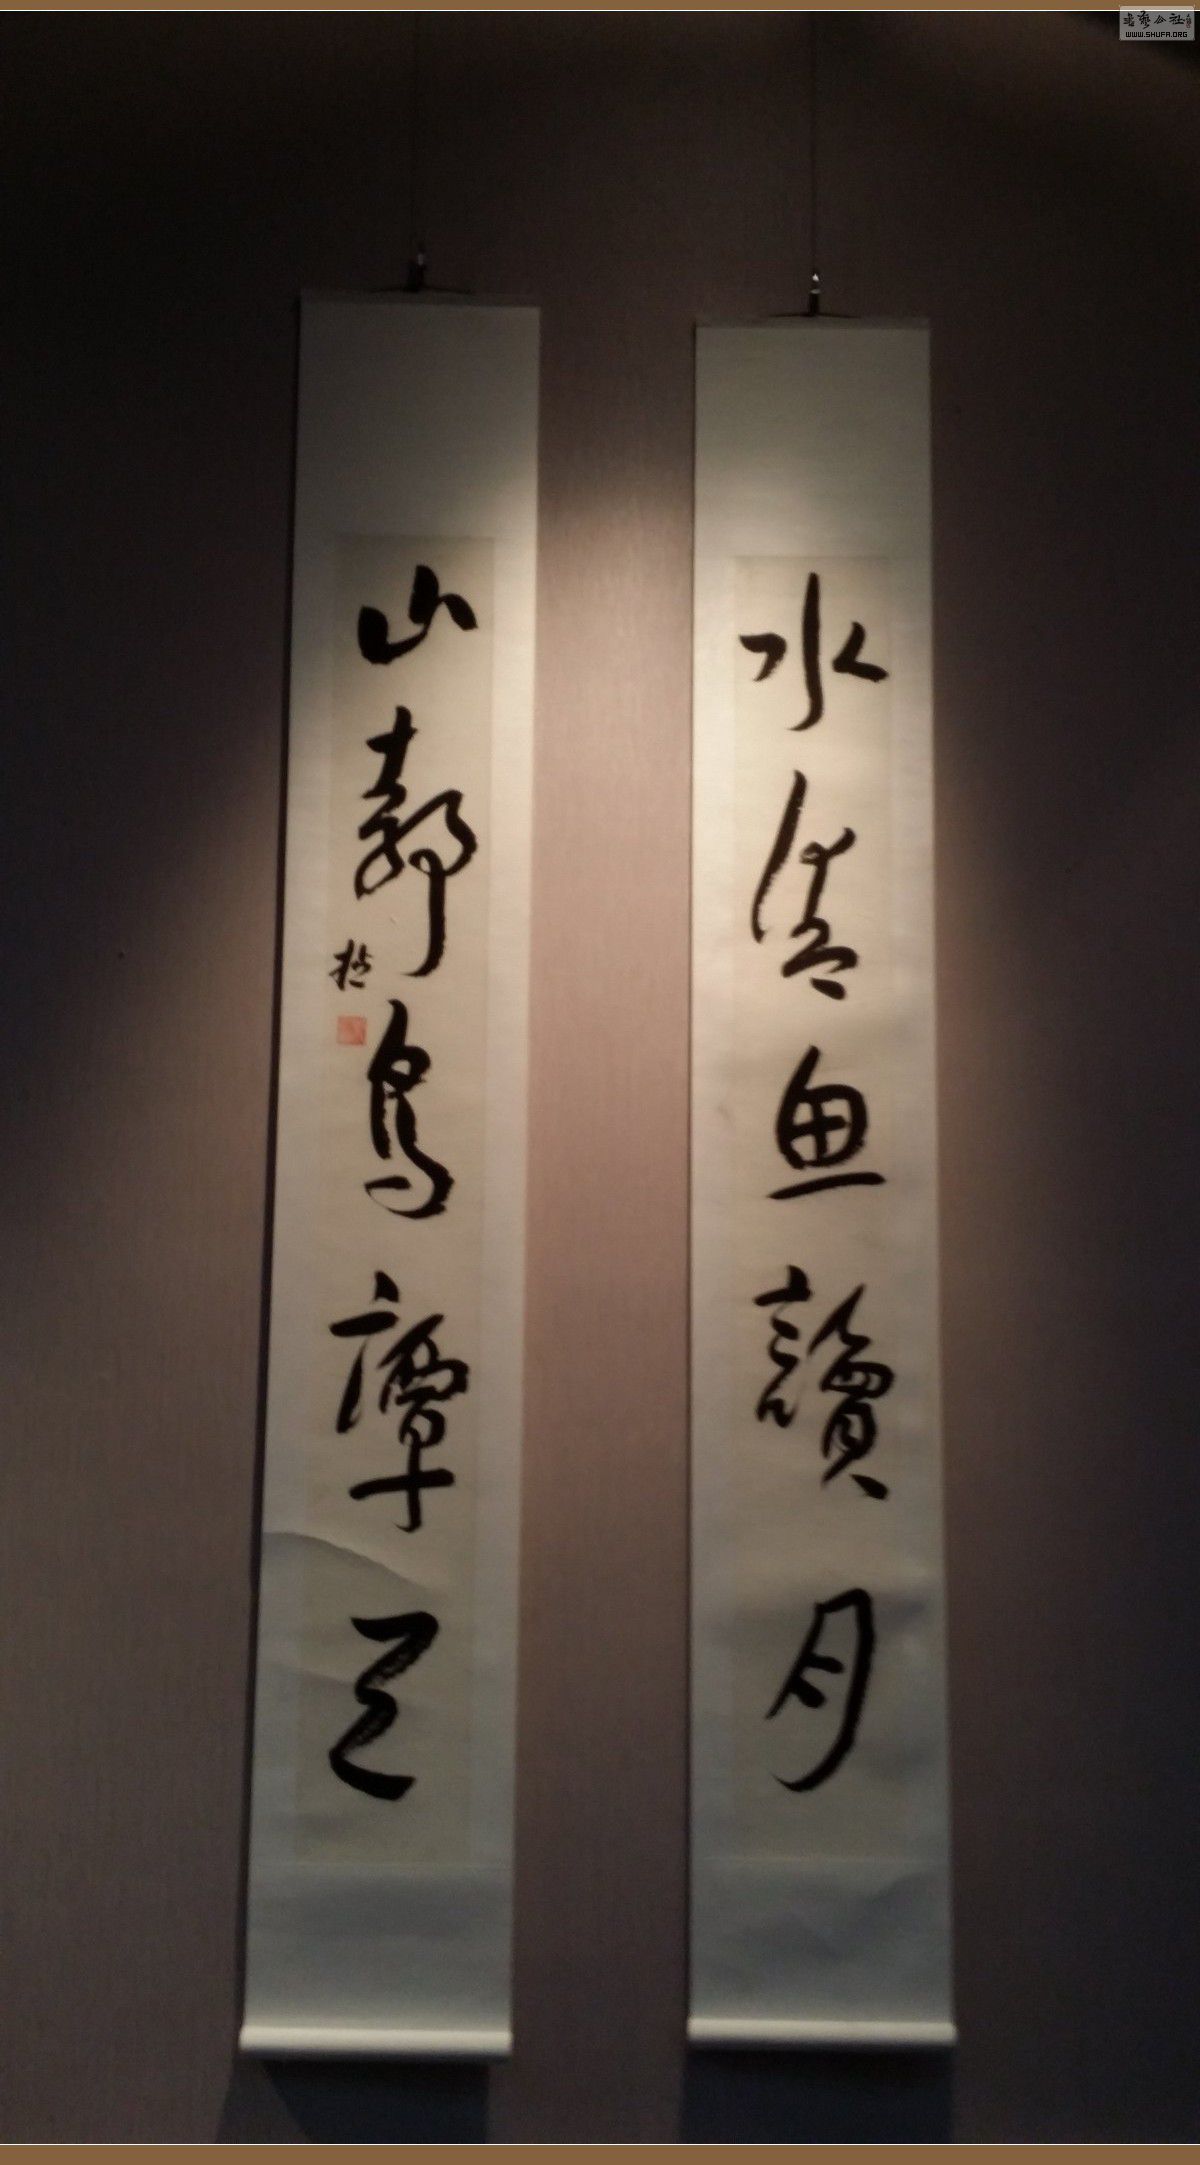 水清魚讀月
山靜鳥譚天
書藝公社
WWW.SHUFA.ORG